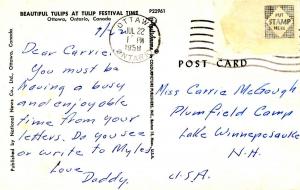 BEAUTIFUL TULIPS AT TULIP FESTIVAL TIME
Ottawa, Ontario, Canada
P22961
OTTAWA
JUL 22
1 PM
1958
ONTARIO
PUT
STAMP
HERE
POST CARD
Dear Carrie,
You must be
having a busy
and enjoyable
time from your
letters. Do you see
or write to Myles
Love
Daddy.
Miss Carrie McGough
Plumfield Camp
Lake Winnepesauke
N.H.
U.S.A.
Published by National News Co., Ltd., Ottawa, Canada